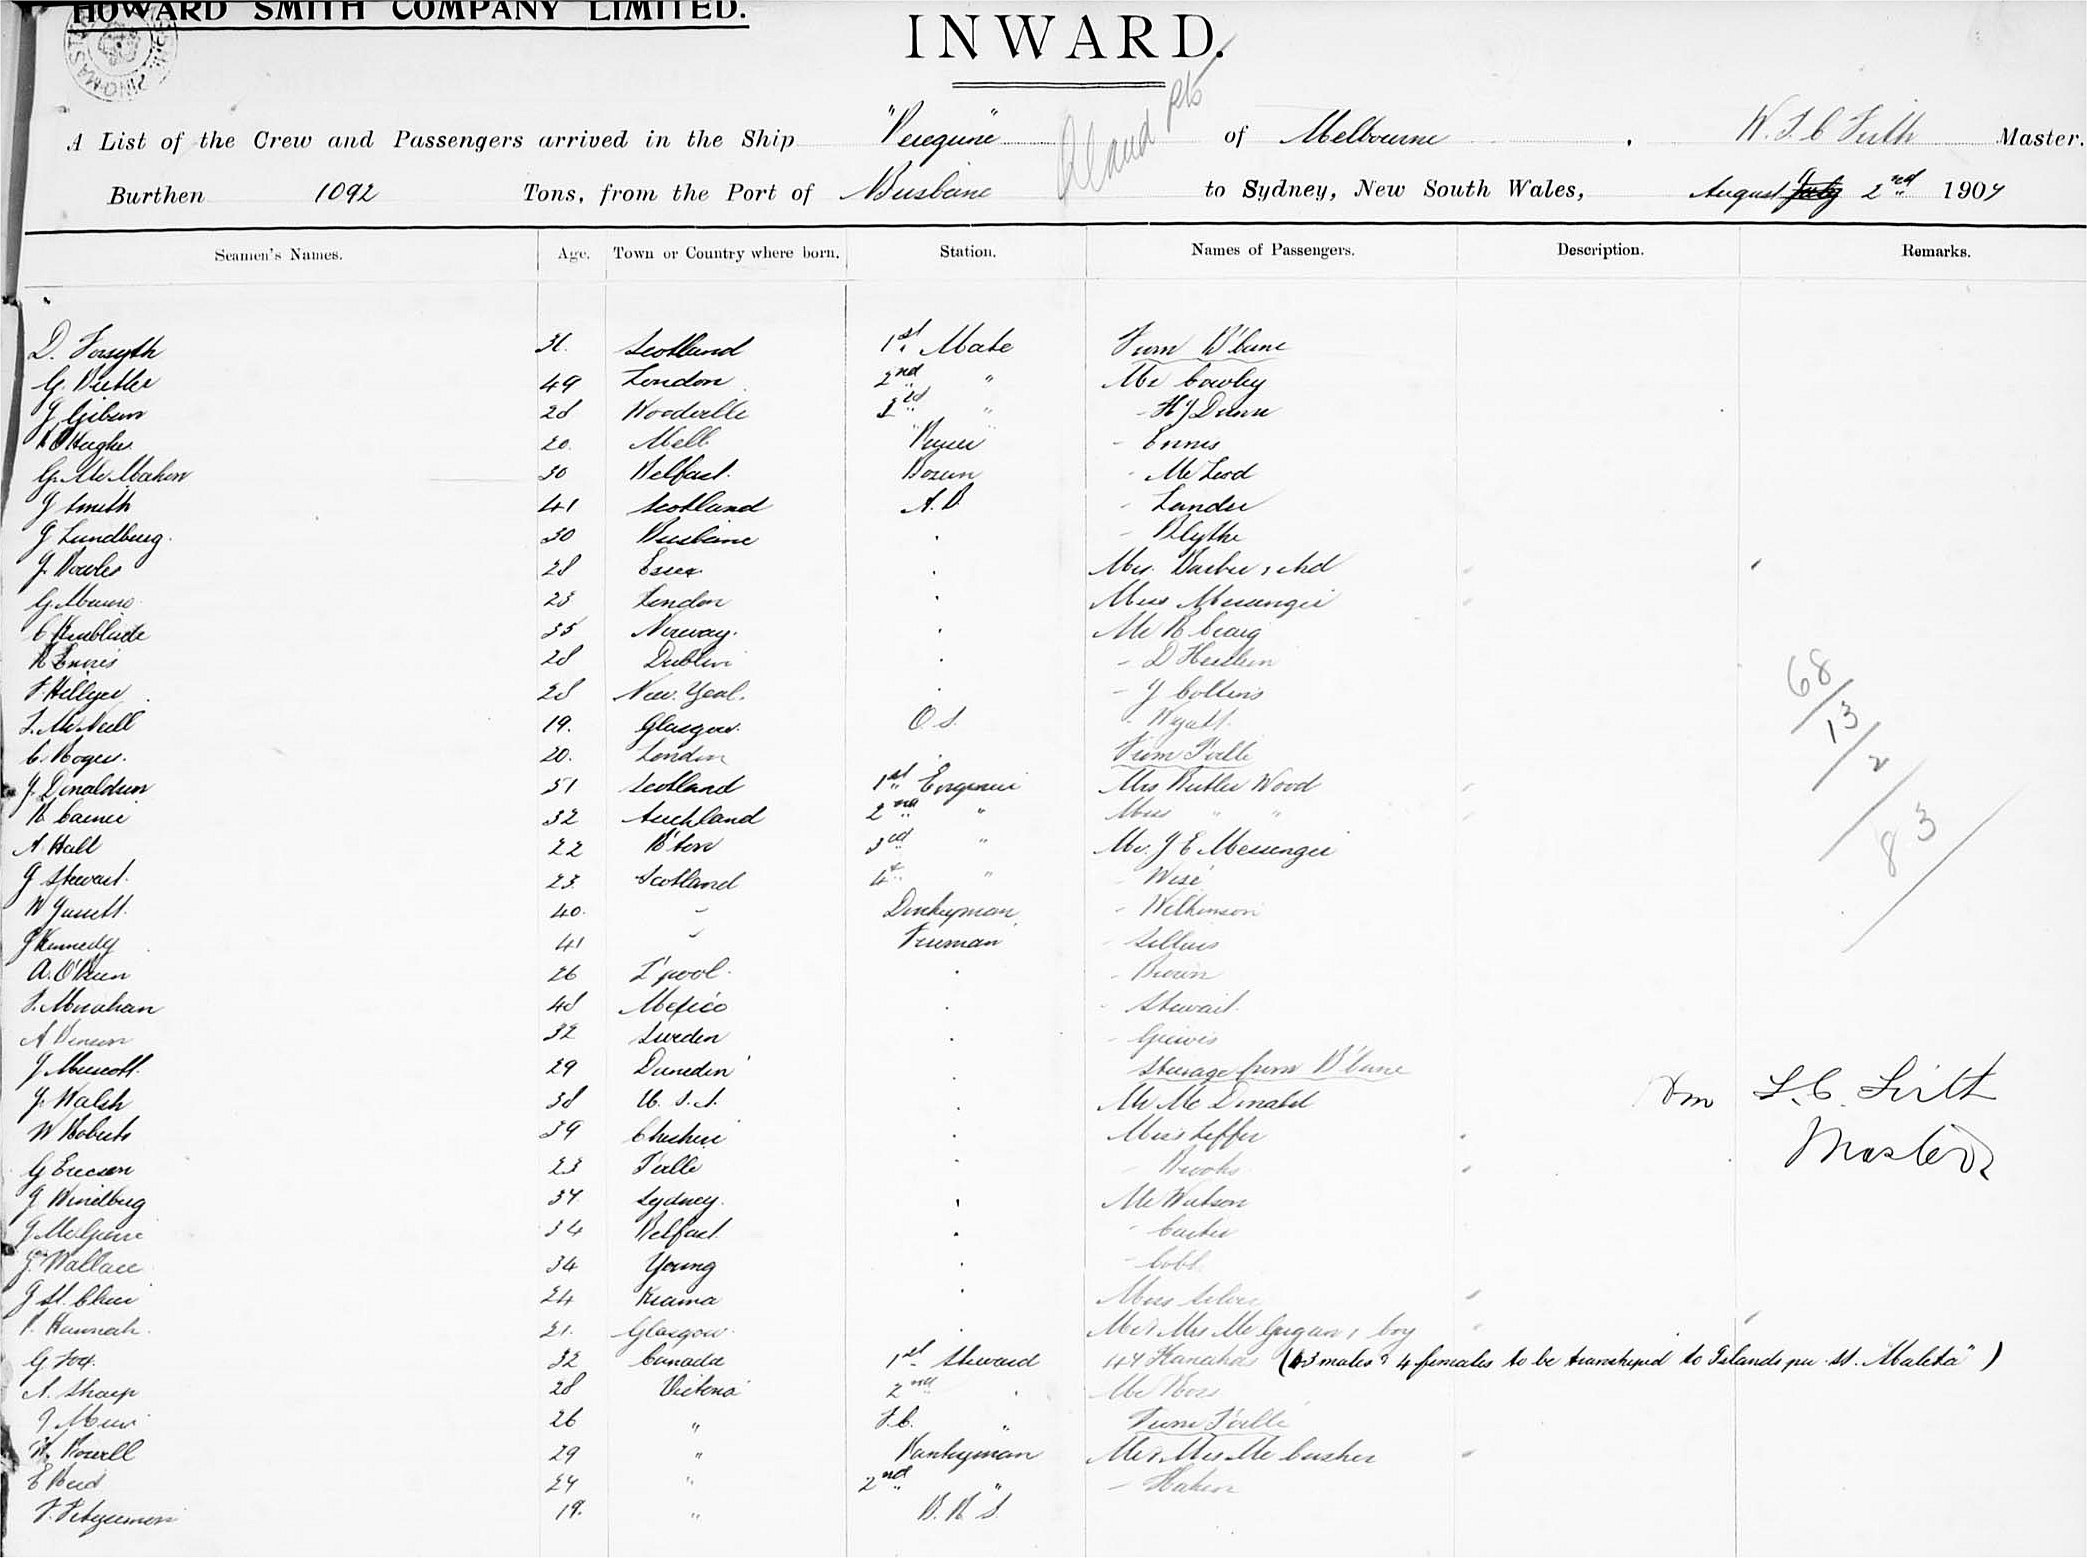 HOWARD SMITH COMPANY LIMITED.
INWARD.
A List of the Crew and Passengers arrived in the Ship "Peregrine" of Melbourne, W. F. C Firth Master.
Burthen 1092 Tons, from the Port of Brisbane to Sydney, New South Wales, August July 2nd 1907
Seamen's Names. Age. Town or Country where born. Station. Names of Passengers. Description. Remarks.
D. Forsyth 31. Scotland 1st Mate From B'bane
49 London 2nd " Mr Cowley
J Gibson 28 Woodville 3rd " - H J Dunn
Hughes 20. Melb. - Ennis
G. McMahon 30 Belfast. Bosun - McLeod
J Smith 41 Scotland A.B - Lander
J Lundberg. 30 Brisbane - Blythe
J. Bowles 28 Essex Mrs. Barber & chd
G. Munro 23 London Miss Messenger
C 35 Norway. Mr R Craig
R Ennis 28 Dublin - D
F Hillyer 28 New. Zeal. - J Collins
McNeill 19. Glasgow. O S. - Wyatt.
C. Rogers. 20. London From T'ville
J. Donaldson 51 Scotland 1st Engineer Mrs Butler Wood
R Cairnie 32 Auckland 2nd " Miss " "
A. Hall 22 B'ton 3rd " Mr. J E Messenger
J Stewart. 23. Scotland 4th " - Wise
W Garrett. 40. " Donkeyman - Wilkinson
J Kennedy 41 " Fireman - Sellars
A. O'Brien 26 L'pool. - Brown
Monahan 48 Mexico - Stewart.
A Benson 32 Sweden
J Muscott. 29 Dunedin Steerage from B'bane
J. Walsh 38 U. S. A. Mr McDonald
W Roberts 39 Cheshire Miss Leffer
G Ericson 23 T'ville - Brooks
J Windberg 37 Sydney. Mr Watson
34 Belfast. - Carter
J. Wallace 34 Young - Cobb
J St. Clair 24 Kiama Miss Silver
P. Hannah. 21. Glasgow. Mr & Mrs McGuigan & boy
G. Fox. 32 Canada 1st Steward 47 Kanakas (43 males & 4 females to be transhiped to Islands per SS. "Malaita")
A. Sharp 28 Victoria 2nd Mr Ross
J Muir 26 " F.C. " From T'ville
W. Powell 29 " Pantryman Mr & Mrs McCusker
E Reid 27 " 2nd "
F. Fitzsimons 19. " B. R S.
68
13
2
83
Wm F. C. Firth
Master